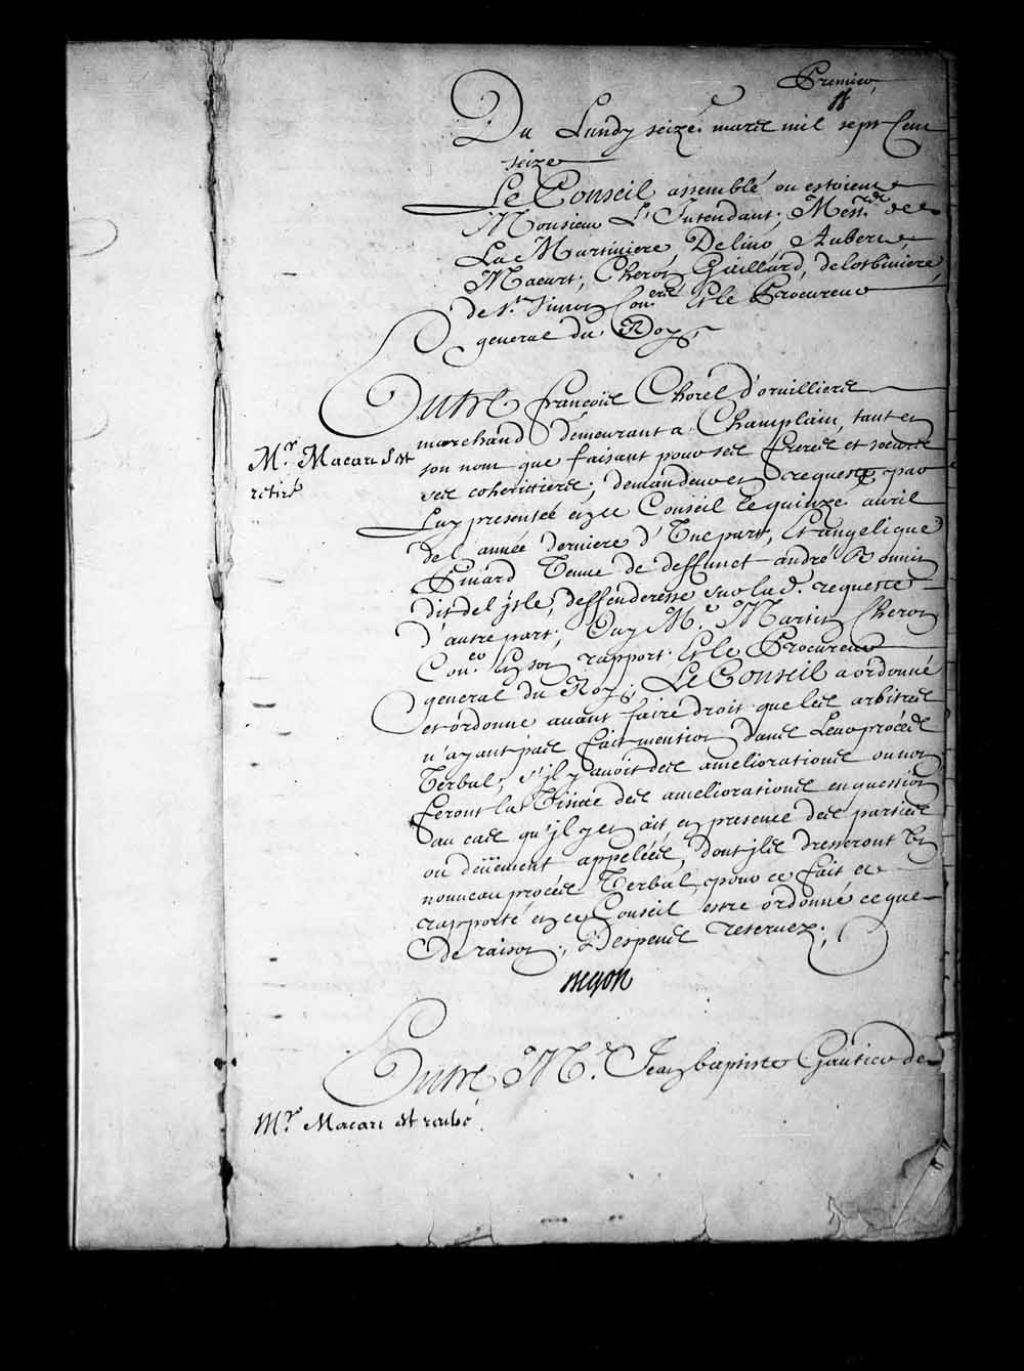 Premier
Du Lundy seize mars mil sept Cent
seize
Le Conseil assemblé ou estoient
Monsieur L'Intendant; Mess.rs de
La Martiniere, Delino, Aubert,
Macart; Cheron Gaillard, delotbiniere,
de St. Simon Con.ers Et le Procureur
general du Roy;
Entre françois Chorel d'orvilliers
marchand demeurant a Champlain, tant en
Mr. Macart s'est
son nom que faisant pour ses freres et soeurs
retiré
ses coherittiers; demandeur en requeste par
Luy presentée en ce Conseil le quinze avril
de l'année derniere d'Une part, Et angelique
Pinard Veuve de deffunct andré Bonnin
dit del'isle, deffenderesse sur lad. requeste
d'autre part; Ouy Me. Martin Cheron
Con.er En son rapport Et le Procureur
general du Roy; Le Conseil a ordonné
et ordonne avant faire droit que les arbitres
n'ayant pas fait mention dans Leur procès
Verbal, s'il y avoit des ameliorations ou non
feront la Visitte des ameliorations en question
au cas qu'il y en ait, en presence des parties
ou düement appelées, dont ils dresseront Un
nouveau procés Verbal, pour ce fait et
raporté en ce Conseil estre ordonné ce que
de raison; Despens reservez;
Begon
Entre Mr. Jean baptiste Gautier de
Mr. Macart est retiré.